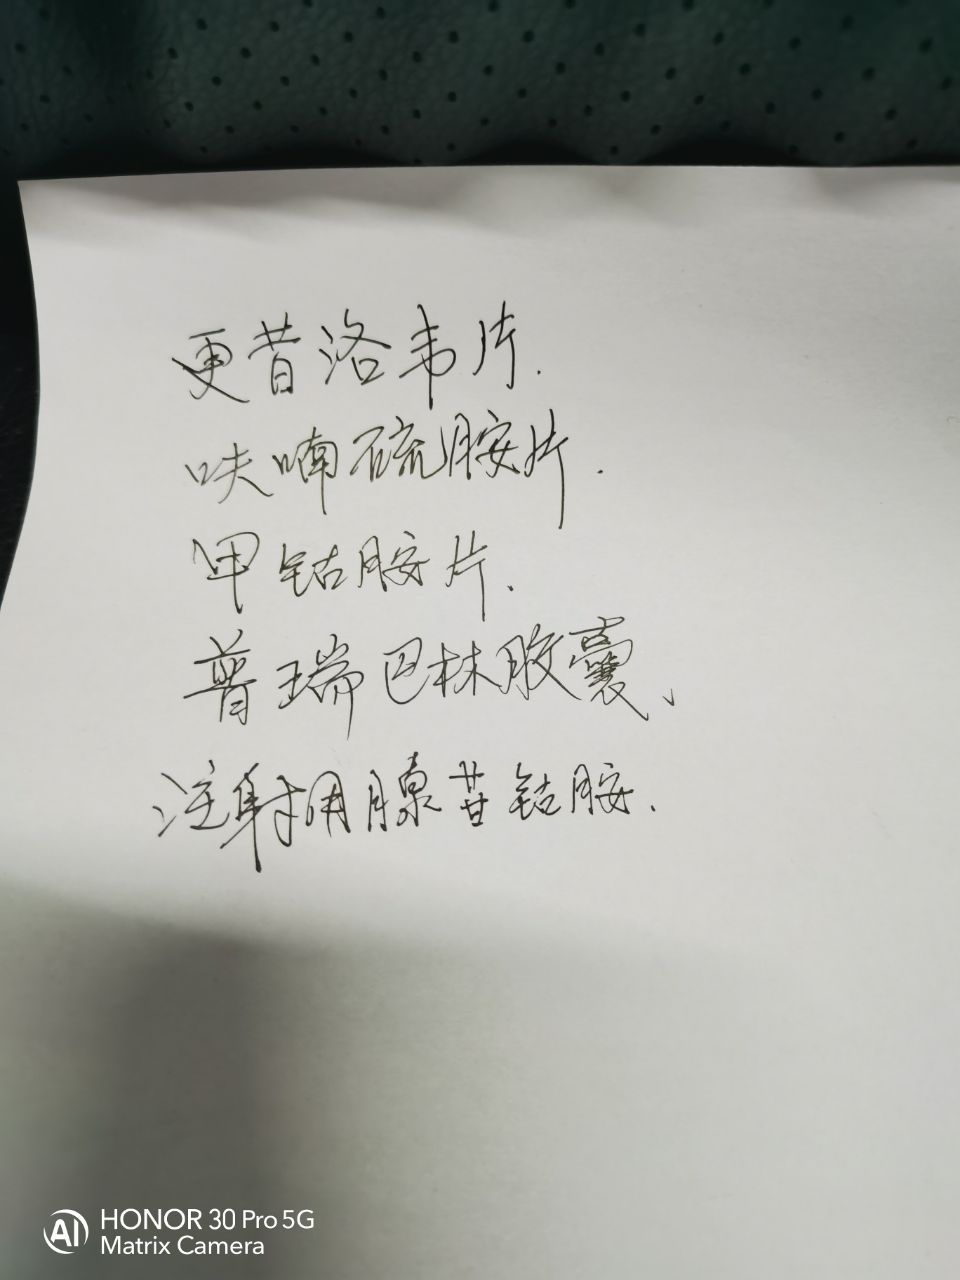 更昔洛韦片.
呋喃硫胺片.
甲钴胺片.
普瑞巴林胶囊、
注射用腺苷钴胺.
HONOR 30 Pro 5G
Matrix Camera
AI